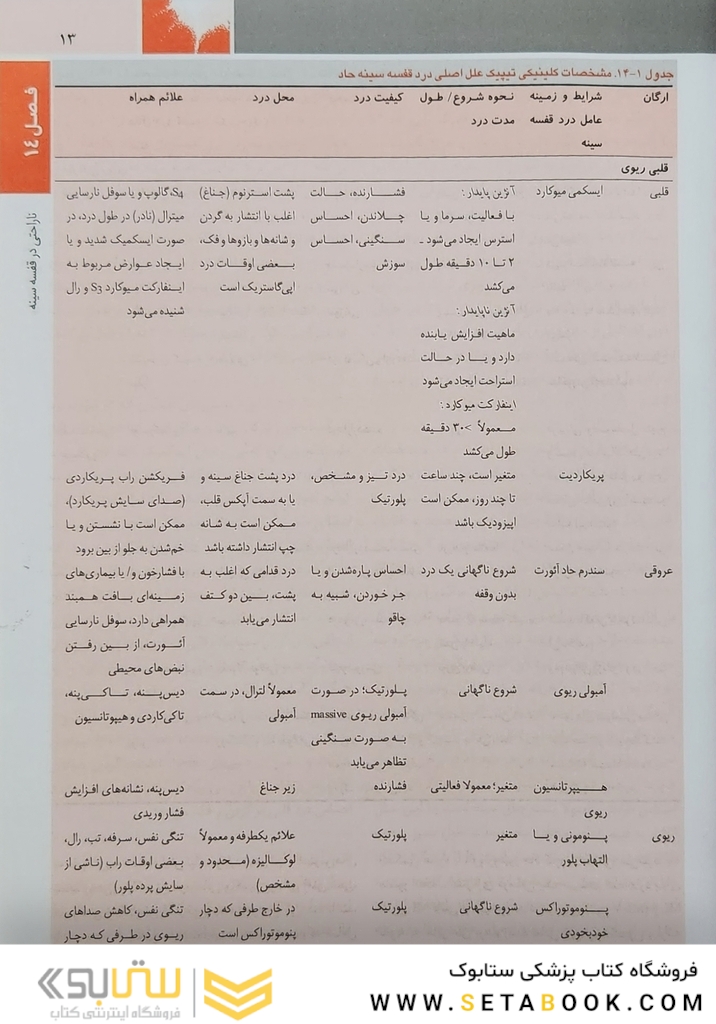 ۱۳
فصل ۱۴
ناراحتی در قفسه سینه
جدول ۱-۱۴. مشخصات کلینیکی تیپیک علل اصلی درد قفسه سینه حاد
ارگان
شرایط و زمینه
عامل درد قفسه
سینه
نحوه شروع/ طول
مدت درد
کیفیت درد
محل درد
علائم همراه
قلبی ریوی
قلبی
ایسکمی میوکارد
آنژین پایدار:
با فعالیت، سرما و یا
استرس ایجاد می‌شود ـ
۲ تا ۱۰ دقیقه طول
می‌کشد
آنژین ناپایدار:
ماهیت افزایش یابنده
دارد و یـا در حـالت
استراحت ایجاد می‌شود
اینفارکت میوکارد:
معمولاً >۳۰ دقیقه
طول می‌کشد
فشارنده، حالت
چلاندن، احساس
سنگینی، احساس
سوزش
پشت استرنوم (جناغ)
اغلب با انتشار به گردن
و شانه‌ها و بازوها و فک،
بعضی اوقات درد
اپی‌گاستریک است
S4، گالوپ و یا سوفل نارسایی
میترال (نادر) در طول درد، در
صورت ایسکمیک شدید و یا
ایجاد عوارض مربوط به
اینفارکت میوکارد S3 و رال
شنیده می‌شود
پریکاردیت
متغیر است، چند ساعت
تا چند روز، ممکن است
اپیزودیک باشد
درد تیز و مشخص،
پلورتیک
درد پشت جناغ سینه و
یا به سمت آپکس قلب،
ممکن است به شانه
چپ انتشار داشته باشد
فریکشن راب پریکاردی
(صدای سایش پریکارد)،
ممکن است با نشستن و یا
خم‌شدن به جلو از بین برود
عروقی
سندرم حاد آئورت
شروع ناگهانی یک درد
بدون وقفه
احساس پاره‌شدن و یا
جر خوردن، شبیه به
چاقو
درد قدامی که اغلب به
پشت، بین دو کتف
انتشار می‌یابد
با فشارخون و/ یا بیماری‌های
زمینه‌ای بافت همبند
همراهی دارد، سوفل نارسایی
آئورت، از بین رفتن
نبض‌های محیطی
آمبولی ریوی
شروع ناگهانی
پلورتیک؛ در صورت
آمبولی ریوی massive
به صورت سنگینی
تظاهر می‌یابد
معمولاً لترال، در سمت
آمبولی
دیس‌پنه، تاکی‌پنه،
تاکی‌کاردی و هیپوتانسیون
هیپرتانسیون
ریوی
متغیر؛ معمولا فعالیتی
فشارنده
زیر جناغ
دیس‌پنه، نشانه‌های افزایش
فشار وریدی
ریوی
پنومونی و یا
التهاب پلور
متغیر
پلورتیک
علائم یکطرفه و معمولاً
لوکالیزه (محدود و
مشخص)
تنگی نفس، سرفه، تب، رال،
بعضی اوقات راب (ناشی از
سایش پرده پلور)
پنوموتوراکس
خودبخودی
شروع ناگهانی
پلورتیک
در خارج طرفی که دچار
پنوموتوراکس است
تنگی نفس، کاهش صداهای
ریوی در طرفی که دچار
فروشگاه کتاب پزشکی ستابوک
WWW.SETABOOK.COM
ستابوک
فروشگاه اینترنتی کتاب